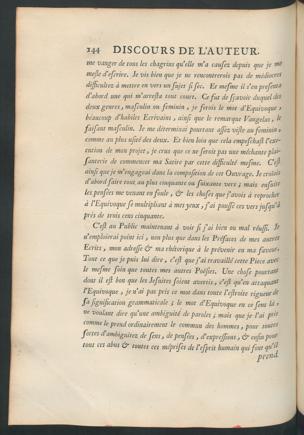 244 DISCOURS DE L'AUTEUR.
me vanger de tous les chagrins qu'elle m'a causez depuis que je me
mesle d'escrire. Je vis bien que je ne rencontrerois pas de médiocres
difficultez à mettre en vers un sujet si sec. Et mesme il s'en presenta
d'abord une qui m'arresta tout court. Ce fut de sçavoir duquel des
deux genres, masculin ou feminin, je ferois le mot d'Equivoque,
beaucoup d'habiles Ecrivains, ainsi que le remarque Vaugelas, le
faisant masculin. Je me déterminai pourtant assez viste au feminin,
comme au plus usité des deux. Et bien loin que cela empeschast l'exe-
cution de mon projet, je crus que ce ne seroit pas une méchante plai-
santerie de commencer ma Satire par cette difficulté mesme. C'est
ainsi que je m'engageai dans la composition de cet Ouvrage. Je croiois
d'abord faire tout au plus cinquante ou soixante vers; mais ensuite
les pensées me venant en foule, & les choses que j'avois à reprocher
à l'Equivoque se multipliant à mes yeux, j'ai poussé ces vers jusqu'à
prés de trois cens cinquante.
C'est au Public maintenant à voir si j'ai bien ou mal réussi. Je
n'emploierai point ici, non plus que dans les Préfaces de mes autres
Ecrits, mon adresse & ma rhétorique à le prévenir en ma faveur.
Tout ce que je puis lui dire, c'est que j'ai travaillé cette Piece avec
le mesme soin que toutes mes autres Poësies. Une chose pourtant
dont il est bon que les Jésuites soient avertis, c'est qu'en attaquant
l'Equivoque, je n'ai pas pris ce mot dans toute l'estroite rigueur de
sa signification grammaticale; le mot d'Equivoque en ce sens là,
ne voulant dire qu'une ambiguité de paroles; mais que je l'ai pris
comme le prend ordinairement le commun des hommes, pour toutes
sortes d'ambiguitez de sens, de pensées, d'expressions, & enfin pour
tous ces abus & toutes ces méprises de l'esprit humain qui font qu'il
prend